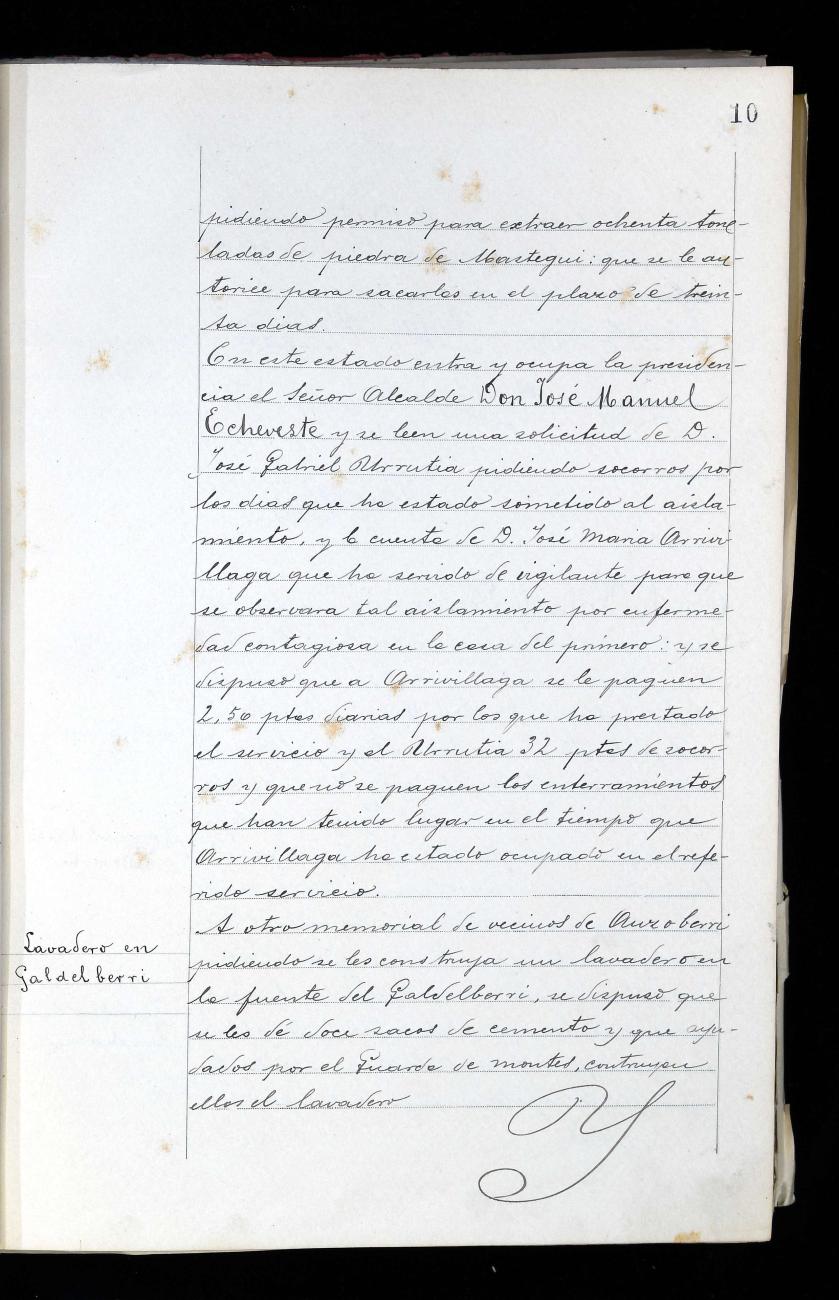 10
pidiendo permiso para extraer ochenta tone-
ladas de piedra de Mastegui: que se le au-
torice para sacarlas en el plazo de trein-
ta dias.
En este estado entra y ocupa la presiden-
cia el Señor Alcalde Don José Manuel
Echeveste y se leen una solicitud de D.
José Gabriel Urrutia pidiendo socorros por
los dias que ha estado sometido al aisla-
miento, y la cuenta de D. José Maria Arrivi-
llaga que ha servido de vigilante para que
se observara tal aislamiento por enferme-
dad contagiosa en la casa del primero: y se
dispuso que a Arrivillaga se le paguen
2,50 ptas diarias por los que ha prestado
el servicio y al Urrutia 32 ptas de socor-
ros y que no se paguen los enterramientos
que han tenido lugar en el tiempo que
Arrivillaga ha estado ocupado en el refe-
rido servicio.
A otro memorial de vecinos de Auzoberri
Lavadero en
Galdelberri
pidiendo se les construya un lavadero en
la fuente del Galdelberri, se dispuso que
se les dé doce sacos de cemento y que ayu-
dados por el Guarda de montes, contruyan
ellos el lavadero